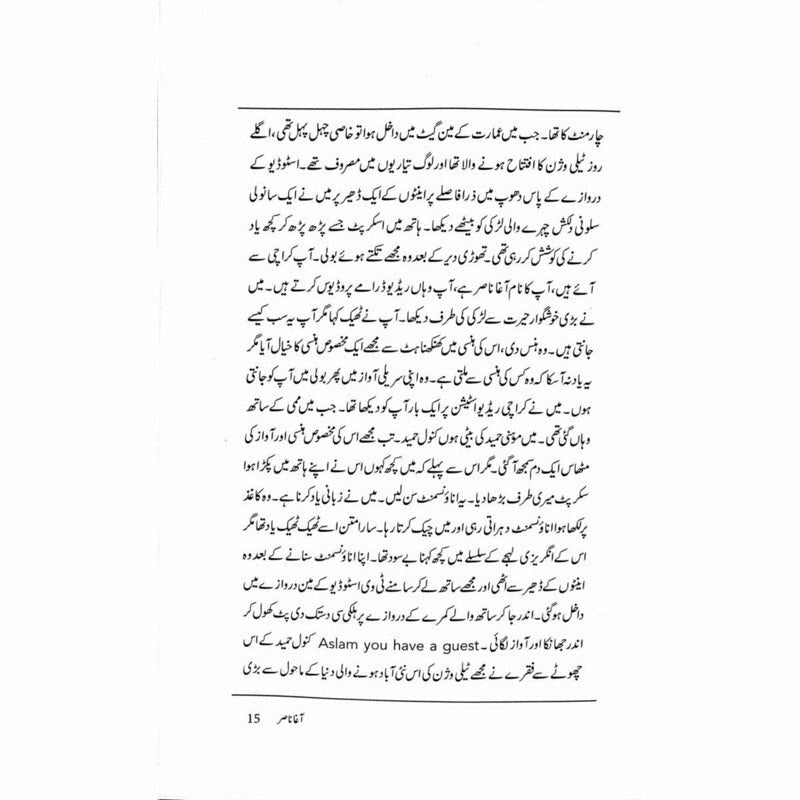 چار منٹ کا تھا۔ جب میں عمارت کے مین گیٹ میں داخل ہوا تو خاصی چہل پہل تھی، اگلے
روز ٹیلی وژن کا افتتاح ہونے والا تھا اور لوگ تیاریوں میں مصروف تھے۔ اسٹوڈیو کے
دروازے کے پاس دھوپ میں ذرا فاصلے پر اینٹوں کے ایک ڈھیر پر میں نے ایک سانولی
سلونی دلکش چہرے والی لڑکی کو بیٹھے دیکھا۔ ہاتھ میں اسکرپٹ جسے پڑھ پڑھ کر کچھ یاد
کرنے کی کوشش کر رہی تھی۔ تھوڑی دیر کے بعد وہ مجھے تکتے ہوئے بولی۔ آپ کراچی سے
آئے ہیں، آپ کا نام آغا ناصر ہے، آپ وہاں ریڈیو ڈرامے پروڈیوس کرتے ہیں۔ میں
نے بڑی خوشگوار حیرت سے لڑکی کی طرف دیکھا۔ آپ نے ٹھیک کہا مگر آپ یہ سب کیسے
جانتی ہیں۔ وہ ہنس دی، اس کی ہنسی میں کھنکھناہٹ سے مجھے ایک مخصوص ہنسی کا خیال آیا مگر
یہ یاد نہ آ سکا کہ وہ کس کی ہنسی سے ملتی ہے۔ وہ اپنی سریلی آواز میں پھر بولی میں آپ کو جانتی
ہوں۔ میں نے کراچی ریڈیو اسٹیشن پر ایک بار آپ کو دیکھا تھا۔ جب میں ممی کے ساتھ
وہاں گئی تھی۔ میں موہنی حمید کی بیٹی ہوں کنول حمید۔ تب مجھے اس کی مخصوص ہنسی اور آواز کی
مٹھاس ایک دم سمجھ آ گئی۔ مگر اس سے پہلے کہ میں کچھ کہوں اس نے اپنے ہاتھ میں پکڑا ہوا
سکرپٹ میری طرف بڑھا دیا۔ یہ اناؤنسمنٹ سن لیں۔ میں نے زبانی یاد کرنا ہے۔ وہ کاغذ
پر لکھا ہوا اناؤنسمنٹ دہراتی رہی اور میں چیک کرتا رہا۔ سارا متن اسے ٹھیک ٹھیک یاد تھا مگر
اس کے انگریزی لہجے کے سلسلے میں کچھ کہنا بے سود تھا۔ اپنا اناؤنسمنٹ سنانے کے بعد وہ
اینٹوں کے ڈھیر سے اٹھی اور مجھے ساتھ لے کر سامنے ٹی وی اسٹوڈیو کے مین دروازے میں
داخل ہو گئی۔ اندر جا کر ساتھ والے کمرے کے دروازے پر ہلکی سی دستک دی پٹ کھول کر
اندر جھانکا اور آواز لگائی۔ Aslam you have a guest کنول حمید کے اس
چھوٹے سے فقرے نے مجھے ٹیلی وژن کی اس نئی آباد ہونے والی دنیا کے ماحول سے بڑی
آغا ناصر 15